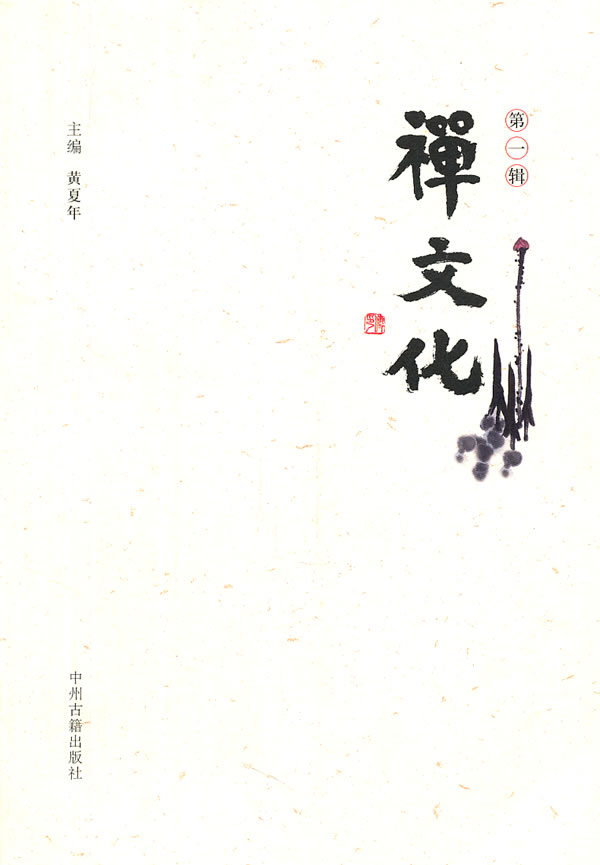 第一辑
禪文化
主编 黄夏年
中州古籍出版社